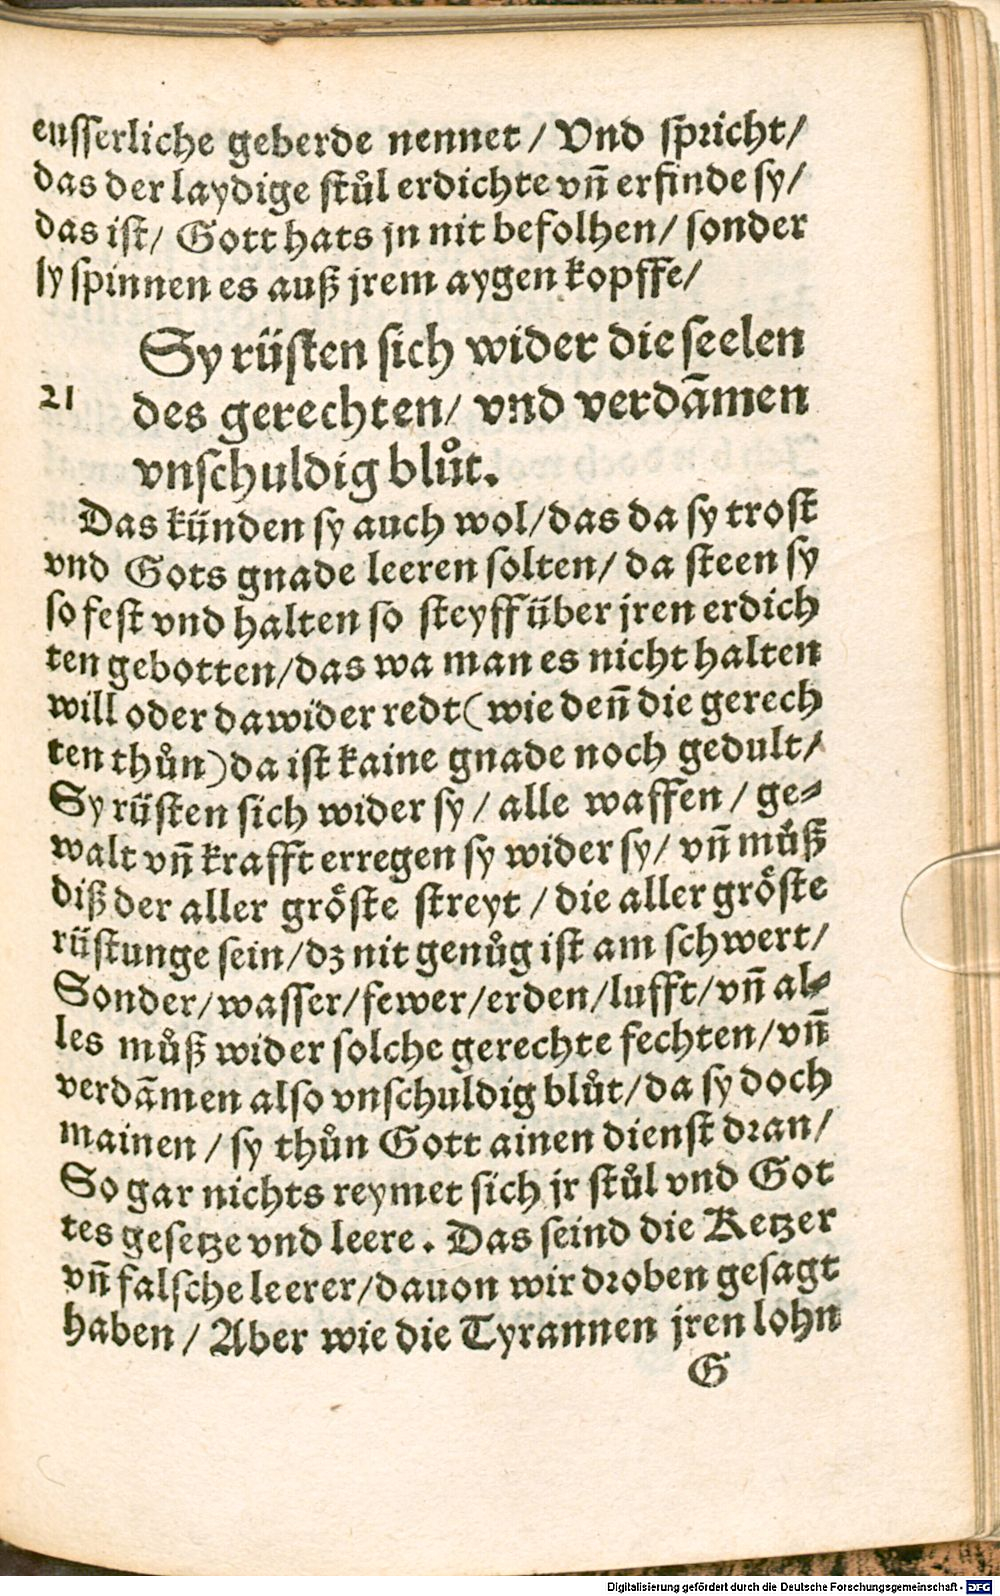 eusserliche geberde nennet / Vnd spricht/
das der laydige stůl erdichte vñ erfinde sy/
das ist/ Gott hats jn nit befolhen/ sonder
sy spinnen es auß jrem aygen kopffe/
Sy rüsten sich wider die seelen
21 des gerechten/ vnd verdãmen
vnschuldig blůt.
Das künden sy auch wol/das da sy trost
vnd Gots gnade leeren solten/ da steen sy
so fest vnd halten so steyff über jren erdich
ten gebotten/das wa man es nicht halten
will oder dawider redt(wie deñ die gerech
ten thůn)da ist kaine gnade noch gedult/
Sy rüsten sich wider sy / alle waffen / ge⸗
walt vñ krafft erregen sy wider sy/ vñ můß
diß der aller gröste streyt / die aller gröste
rüstunge sein/dz nit genůg ist am schwert/
Sonder/wasser/fewer/erden/lufft/vñ al⸗
les můß wider solche gerechte fechten/vñ
verdãmen also vnschuldig blůt/da sy doch
mainen / sy thůn Gott ainen dienst dran/
So gar nichts reymet sich jr stůl vnd Got
tes gesetze vnd leere. Das seind die Ketzer
vñ falsche leerer/dauon wir droben gesagt
haben / Aber wie die Tyrannen jren lohn
G
Digitalisierung gefördert durch die Deutsche Forschungsgemeinschaft - DFG